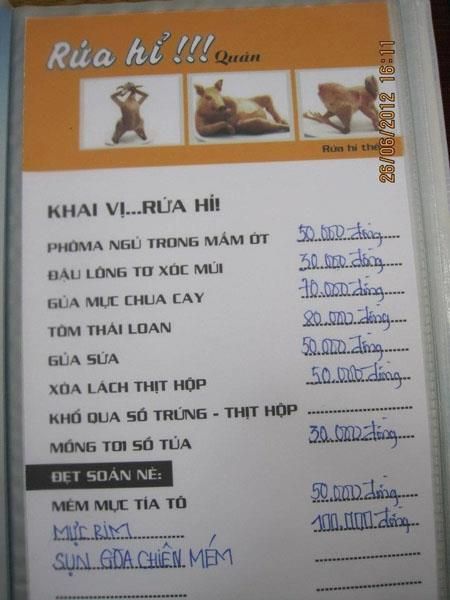 Rứa hỉ !!! Quán
Rứa hỉ thế
26/06/2012 16:11
KHAI VỊ...RỨA HỈ!
PHÔMA NGỦ TRONG MẮM ỚT 50.000 đồng
ĐẬU LÔNG TƠ XÓC MÚI 30.000 đồng
GỦA MỰC CHUA CAY 70.000 đồng
TÔM THÁI LOAN 80.000 đồng
GỦA SỨA 50.000 đồng
XÒA LÁCH THỊT HỘP 50.000 đồng
KHỔ QUA SỔ TRỨNG - THỊT HỘP
MỒNG TOI SỔ TÚA 30.000 đồng
ĐẸT SOẢN NÈ:
MÉM MỰC TÍA TÔ 50.000 đồng
MỰC RIM 100.000 đồng
SỤN GÒA CHIÊN MÉM